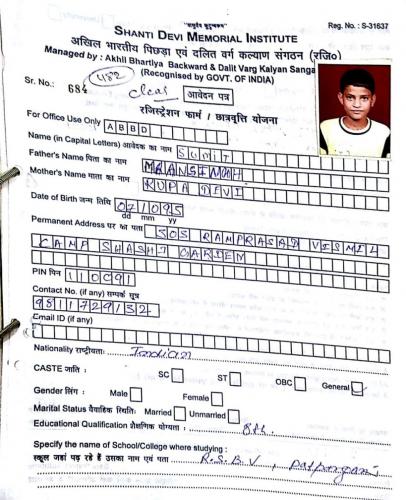 "वसुधैव कुटुम्बकम"
Reg. No. : S-31637
SHANTI DEVI MEMORIAL INSTITUTE
अखिल भारतीय पिछड़ा एवं दलित वर्ग कल्याण संगठन (रजि०)
Managed by : Akhil Bhartiya Backward & Dalit Varg Kalyan Sanga
(Recognised by GOVT. OF INDIA)
Sr. No.: 684 482
Clear आवेदन पत्र
रजिस्ट्रेशन फार्म / छात्रवृत्ति योजना
For Office Use Only ABBD
Name (in Capital Letters) आवेदक का नाम SUMIT
Father's Name पिता का नाम MAAN SINGH
Mother's Name माता का नाम RUPA DEVI
Date of Birth जन्म तिथि 071095
dd mm yy
Permanent Address घर का पता 505 RAMPRASAD VISMIL
CAMP SHASHI GARDEN
PIN पिन 110091
Contact No. (if any) सम्पर्क सूत्र
9811729132
Email ID (if any)
Nationality राष्ट्रीयता: Indian
CASTE जाति : SC ST OBC General
Gender लिंग : Male Female
Marital Status वैवाहिक स्थिति: Married Unmarried
Educational Qualification शैक्षणिक योग्यता : 8th.
Specify the name of School/College where studying :
स्कूल जहां पढ़ रहे हैं उसका नाम एवं पता R.S.B.V, patparganj